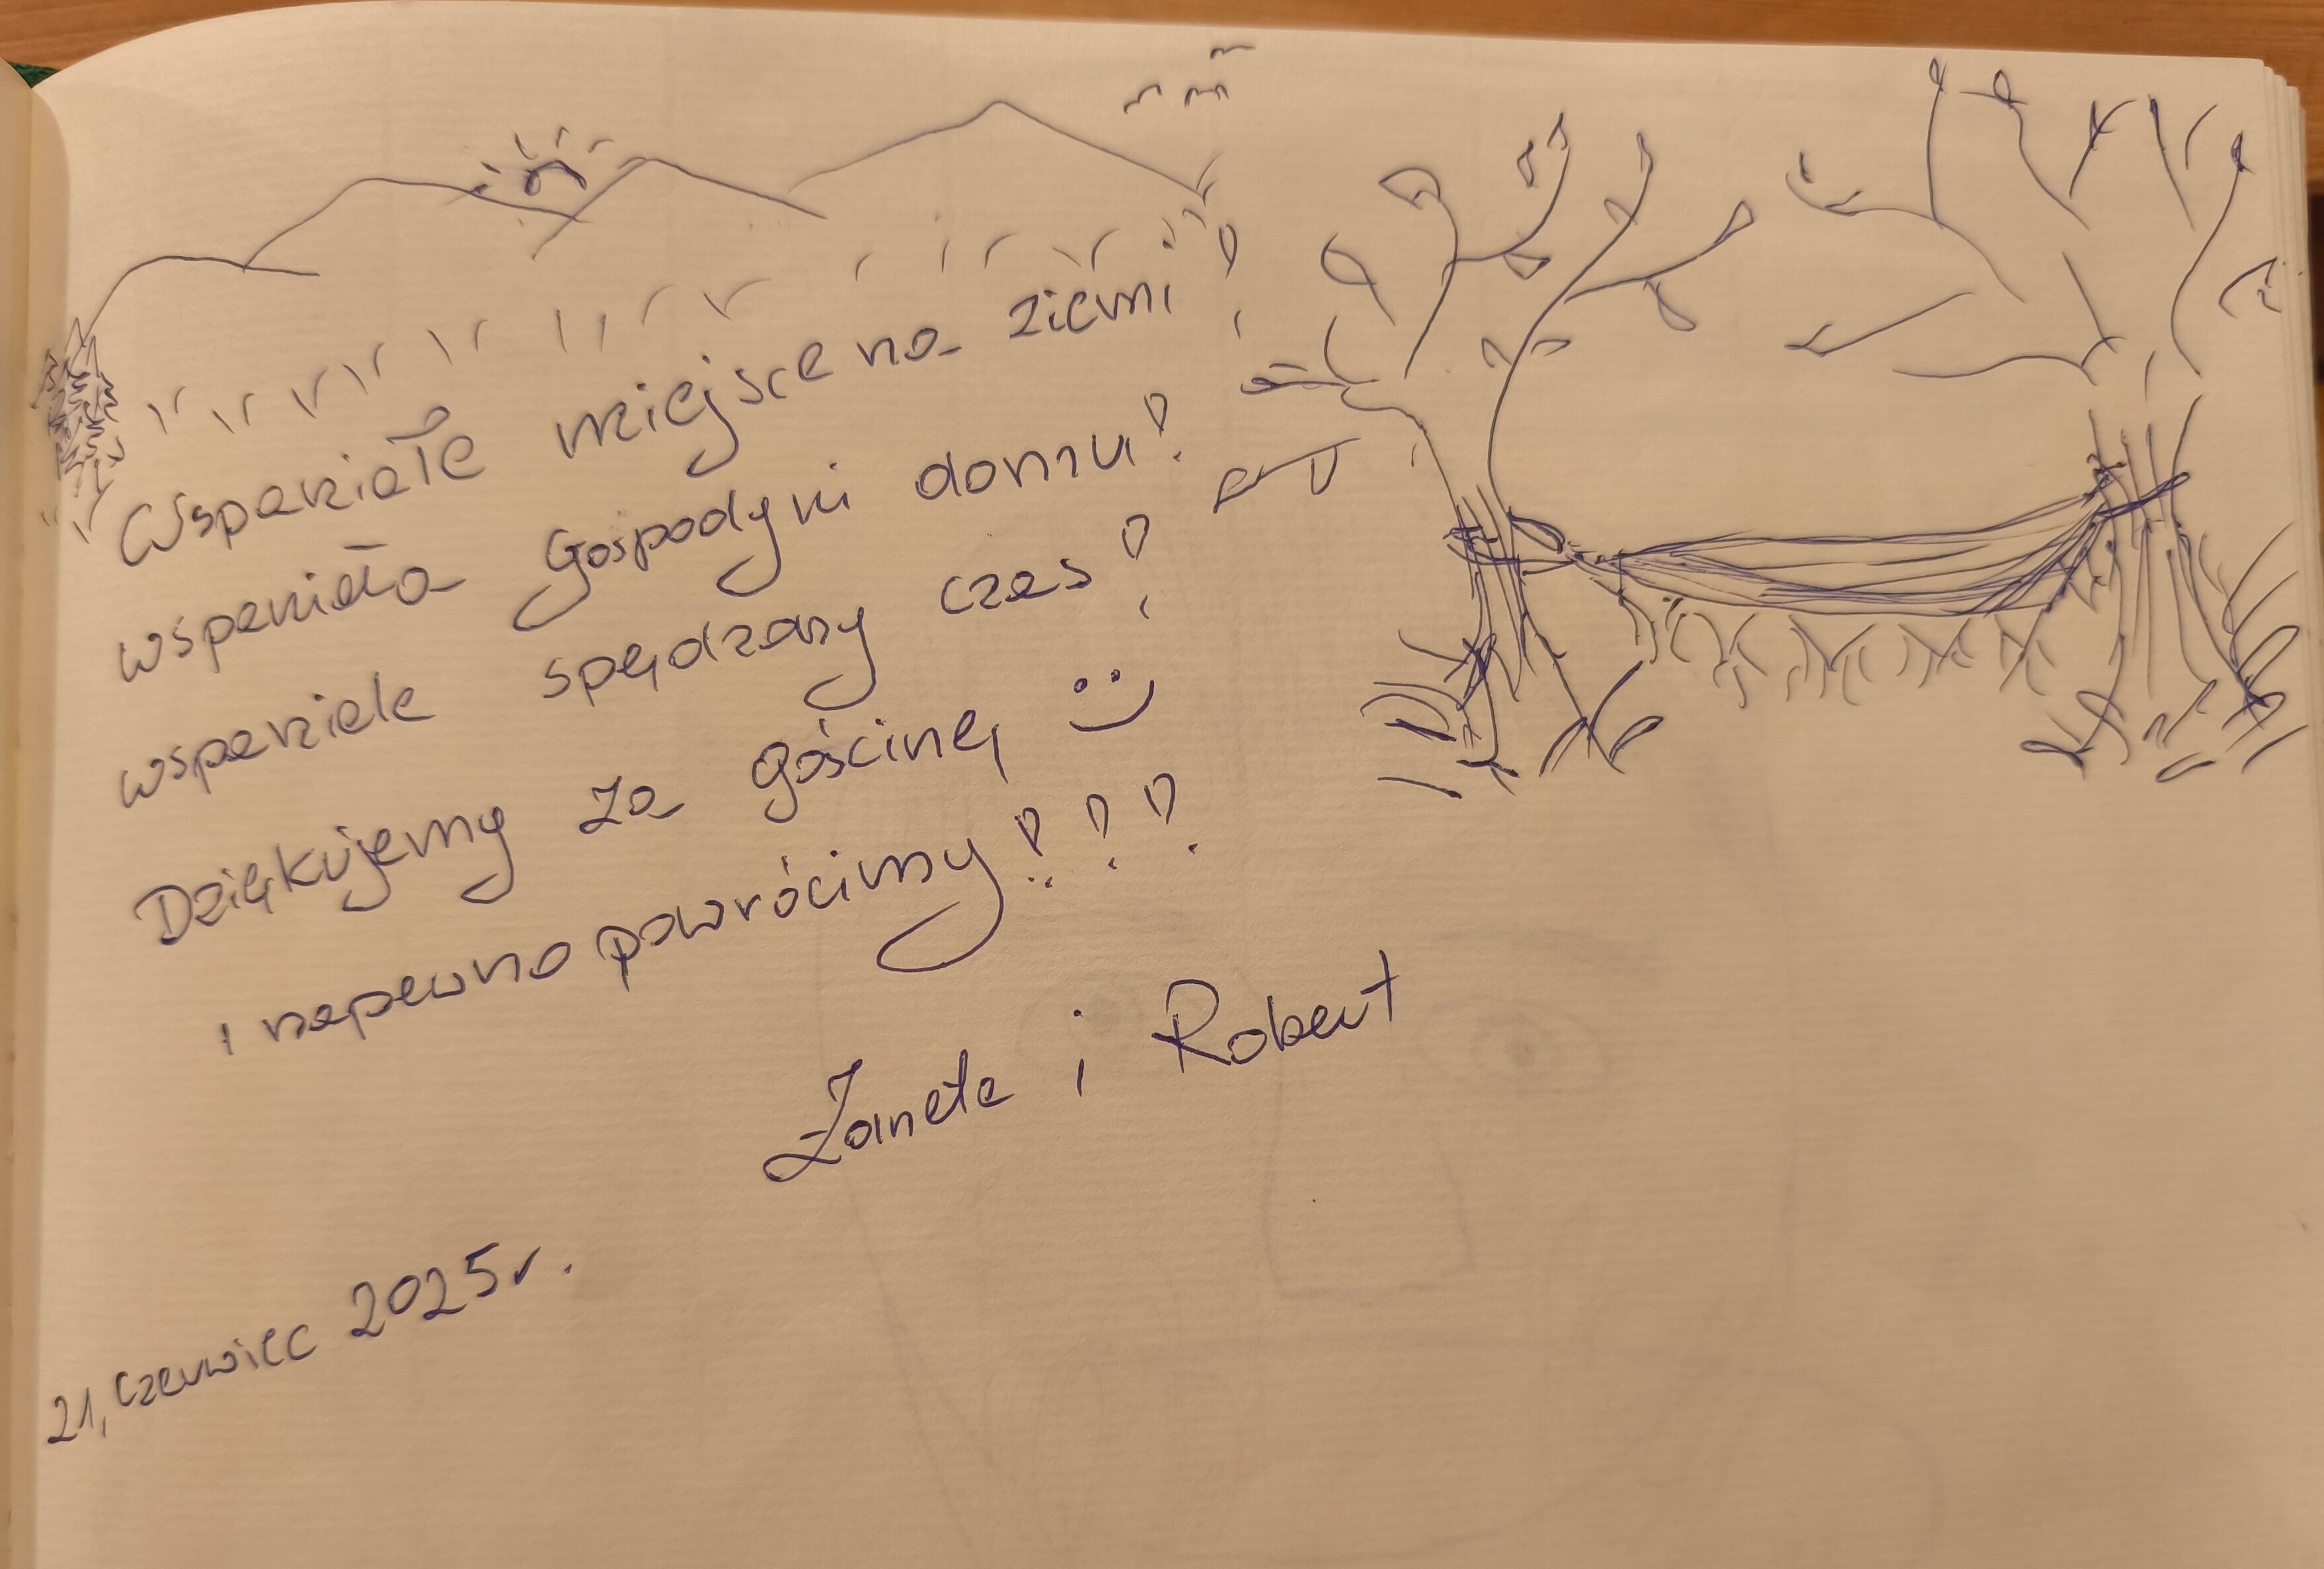 Wspaniałe miejsce na ziemi!
wspaniała Gospodyni domu!
wspaniale spędzony czas!
Dziękujemy za gościnę :)
i napewno powrócimy!!!
Żaneta i Robert
21, czerwiec 2025r.